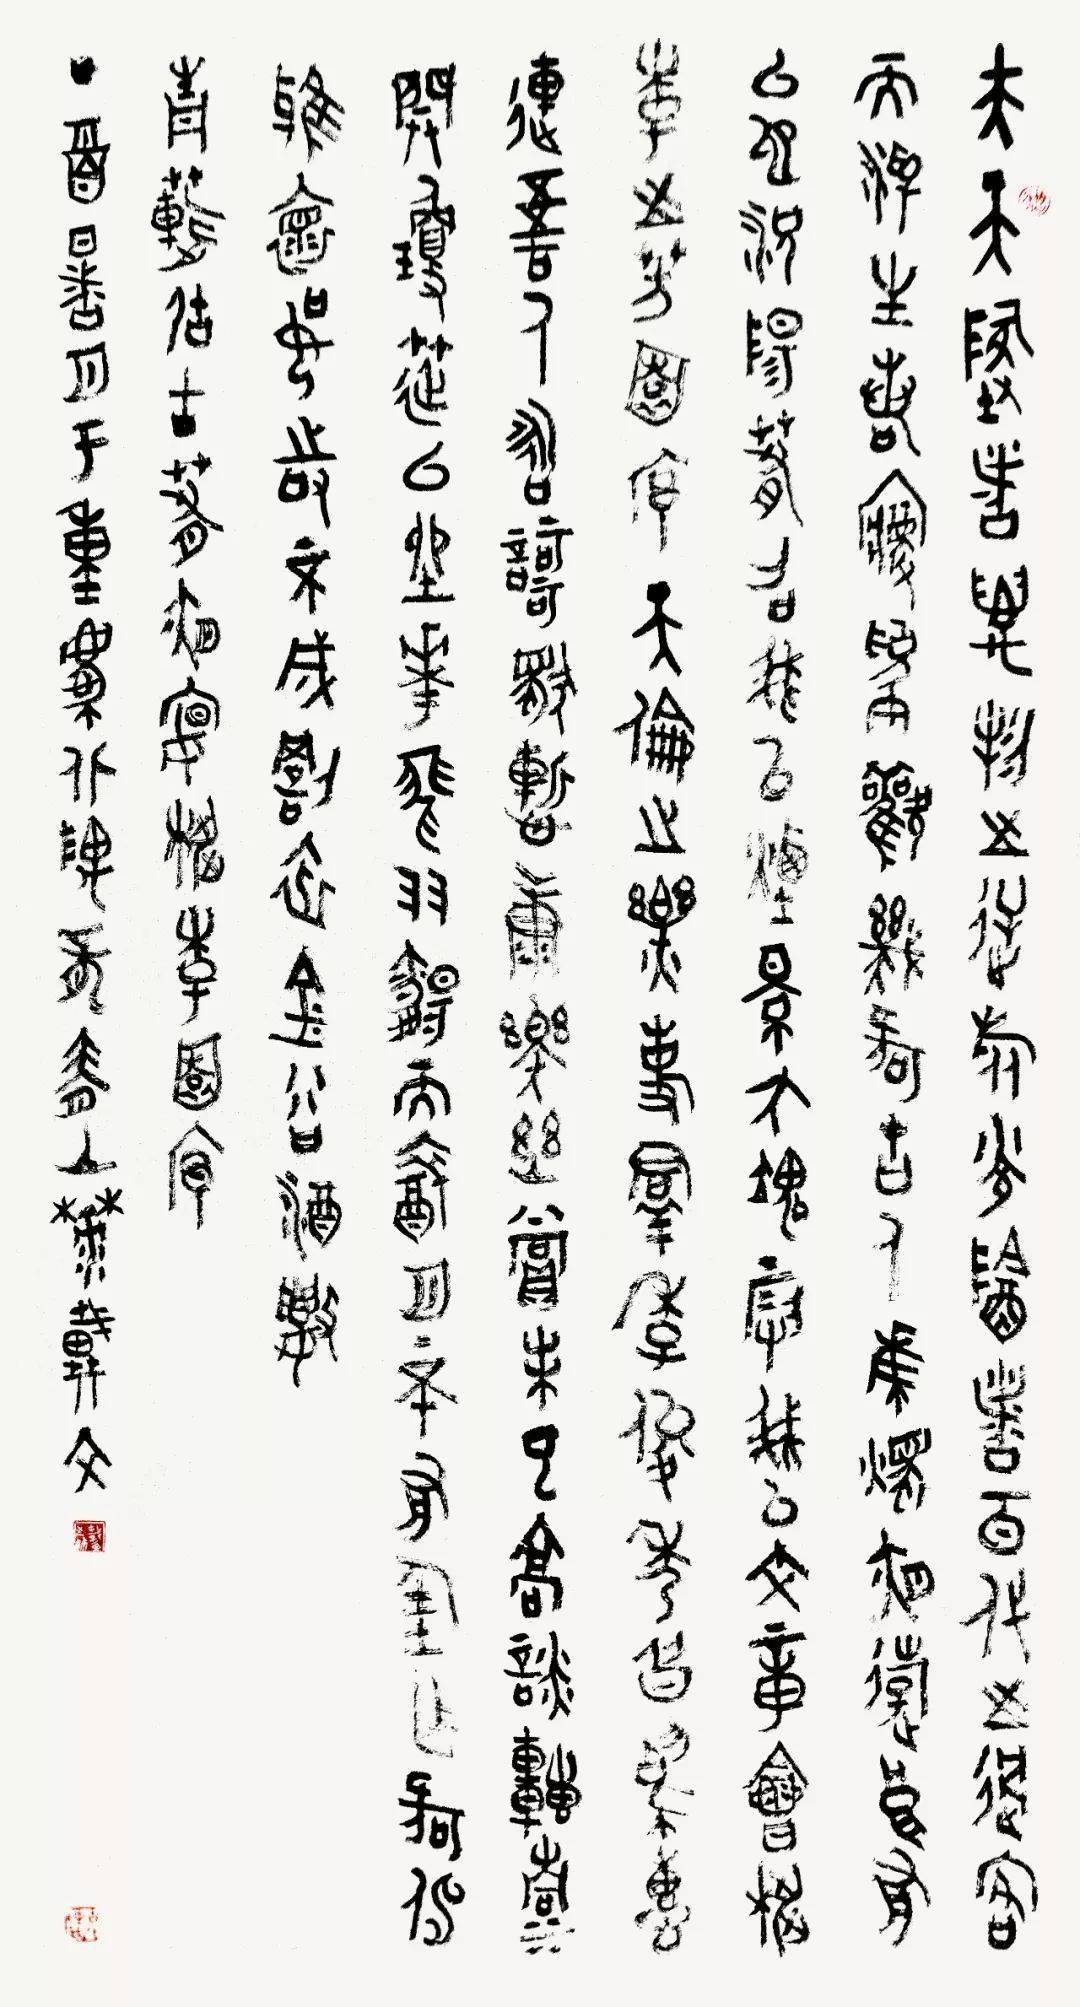 夫天地者萬物之逆旅光陰者百代之過客
而浮生若夢為歡幾何古人秉燭夜遊良有
以也況陽春召我以煙景大塊假我以文章會桃
李之芳園序天倫之樂事群季俊秀皆為惠
連吾人詠歌獨慚康樂幽賞未已高談轉清
開瓊筵以坐花飛羽觴而醉月不有佳作何伸
雅懷如詩不成罰依金谷酒數
青蓮居士春夜宴桃李園序
丁酉月于重慶北碚山戴文